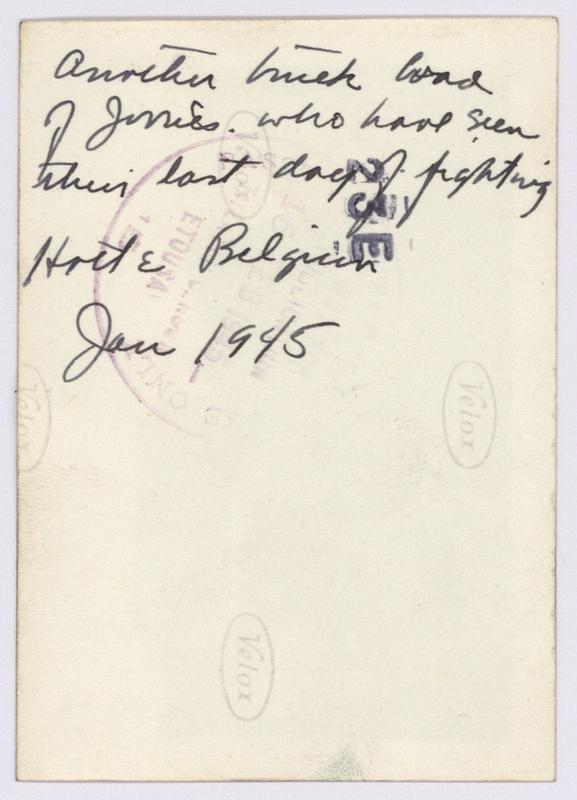 Another truck load
of Jerries. who have seen
their last day of fighting
Belgium
Jan 1945
23E
ETOUSA
Velox
Velox
Velox